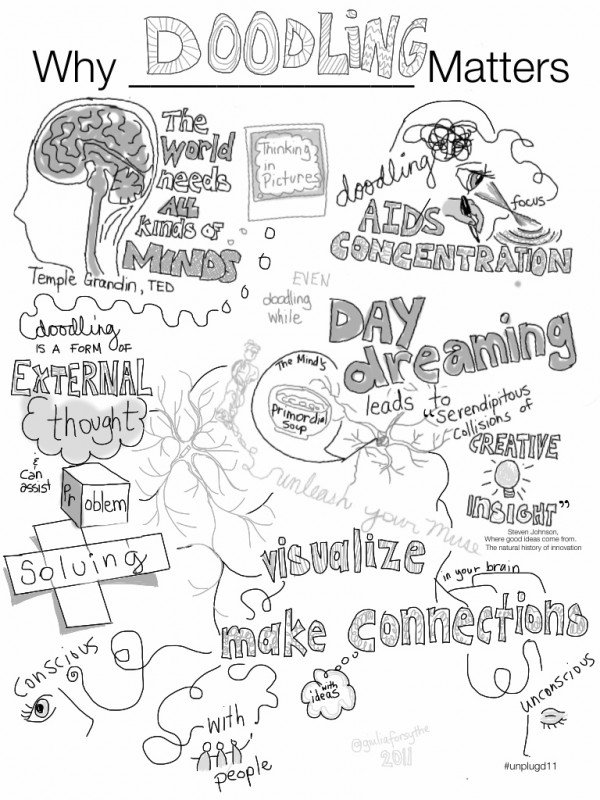 Why DOODLING Matters
The
World
needs
ALL
kinds of
MINDS
Temple Grandin, TED
Thinking
in
Pictures
doodling
AIDS
CONCENTRATION
focus
EVEN
doodling
while
DAY
dreaming
leads to
"Serendipitous
Collisions of
CREATIVE
INSIGHT"
Steven Johnson,
Where good ideas come from.
The natural history of innovation
doodling
IS A FORM OF
EXTERNAL
thought
&
can
assist
Problem
Solving
The Mind's
Primordial
Soup
unleash your muse
visualize
in your brain
make connections
with
ideas
conscious
with
people
unconscious
@giuliaforsythe
2011
#unplugd11